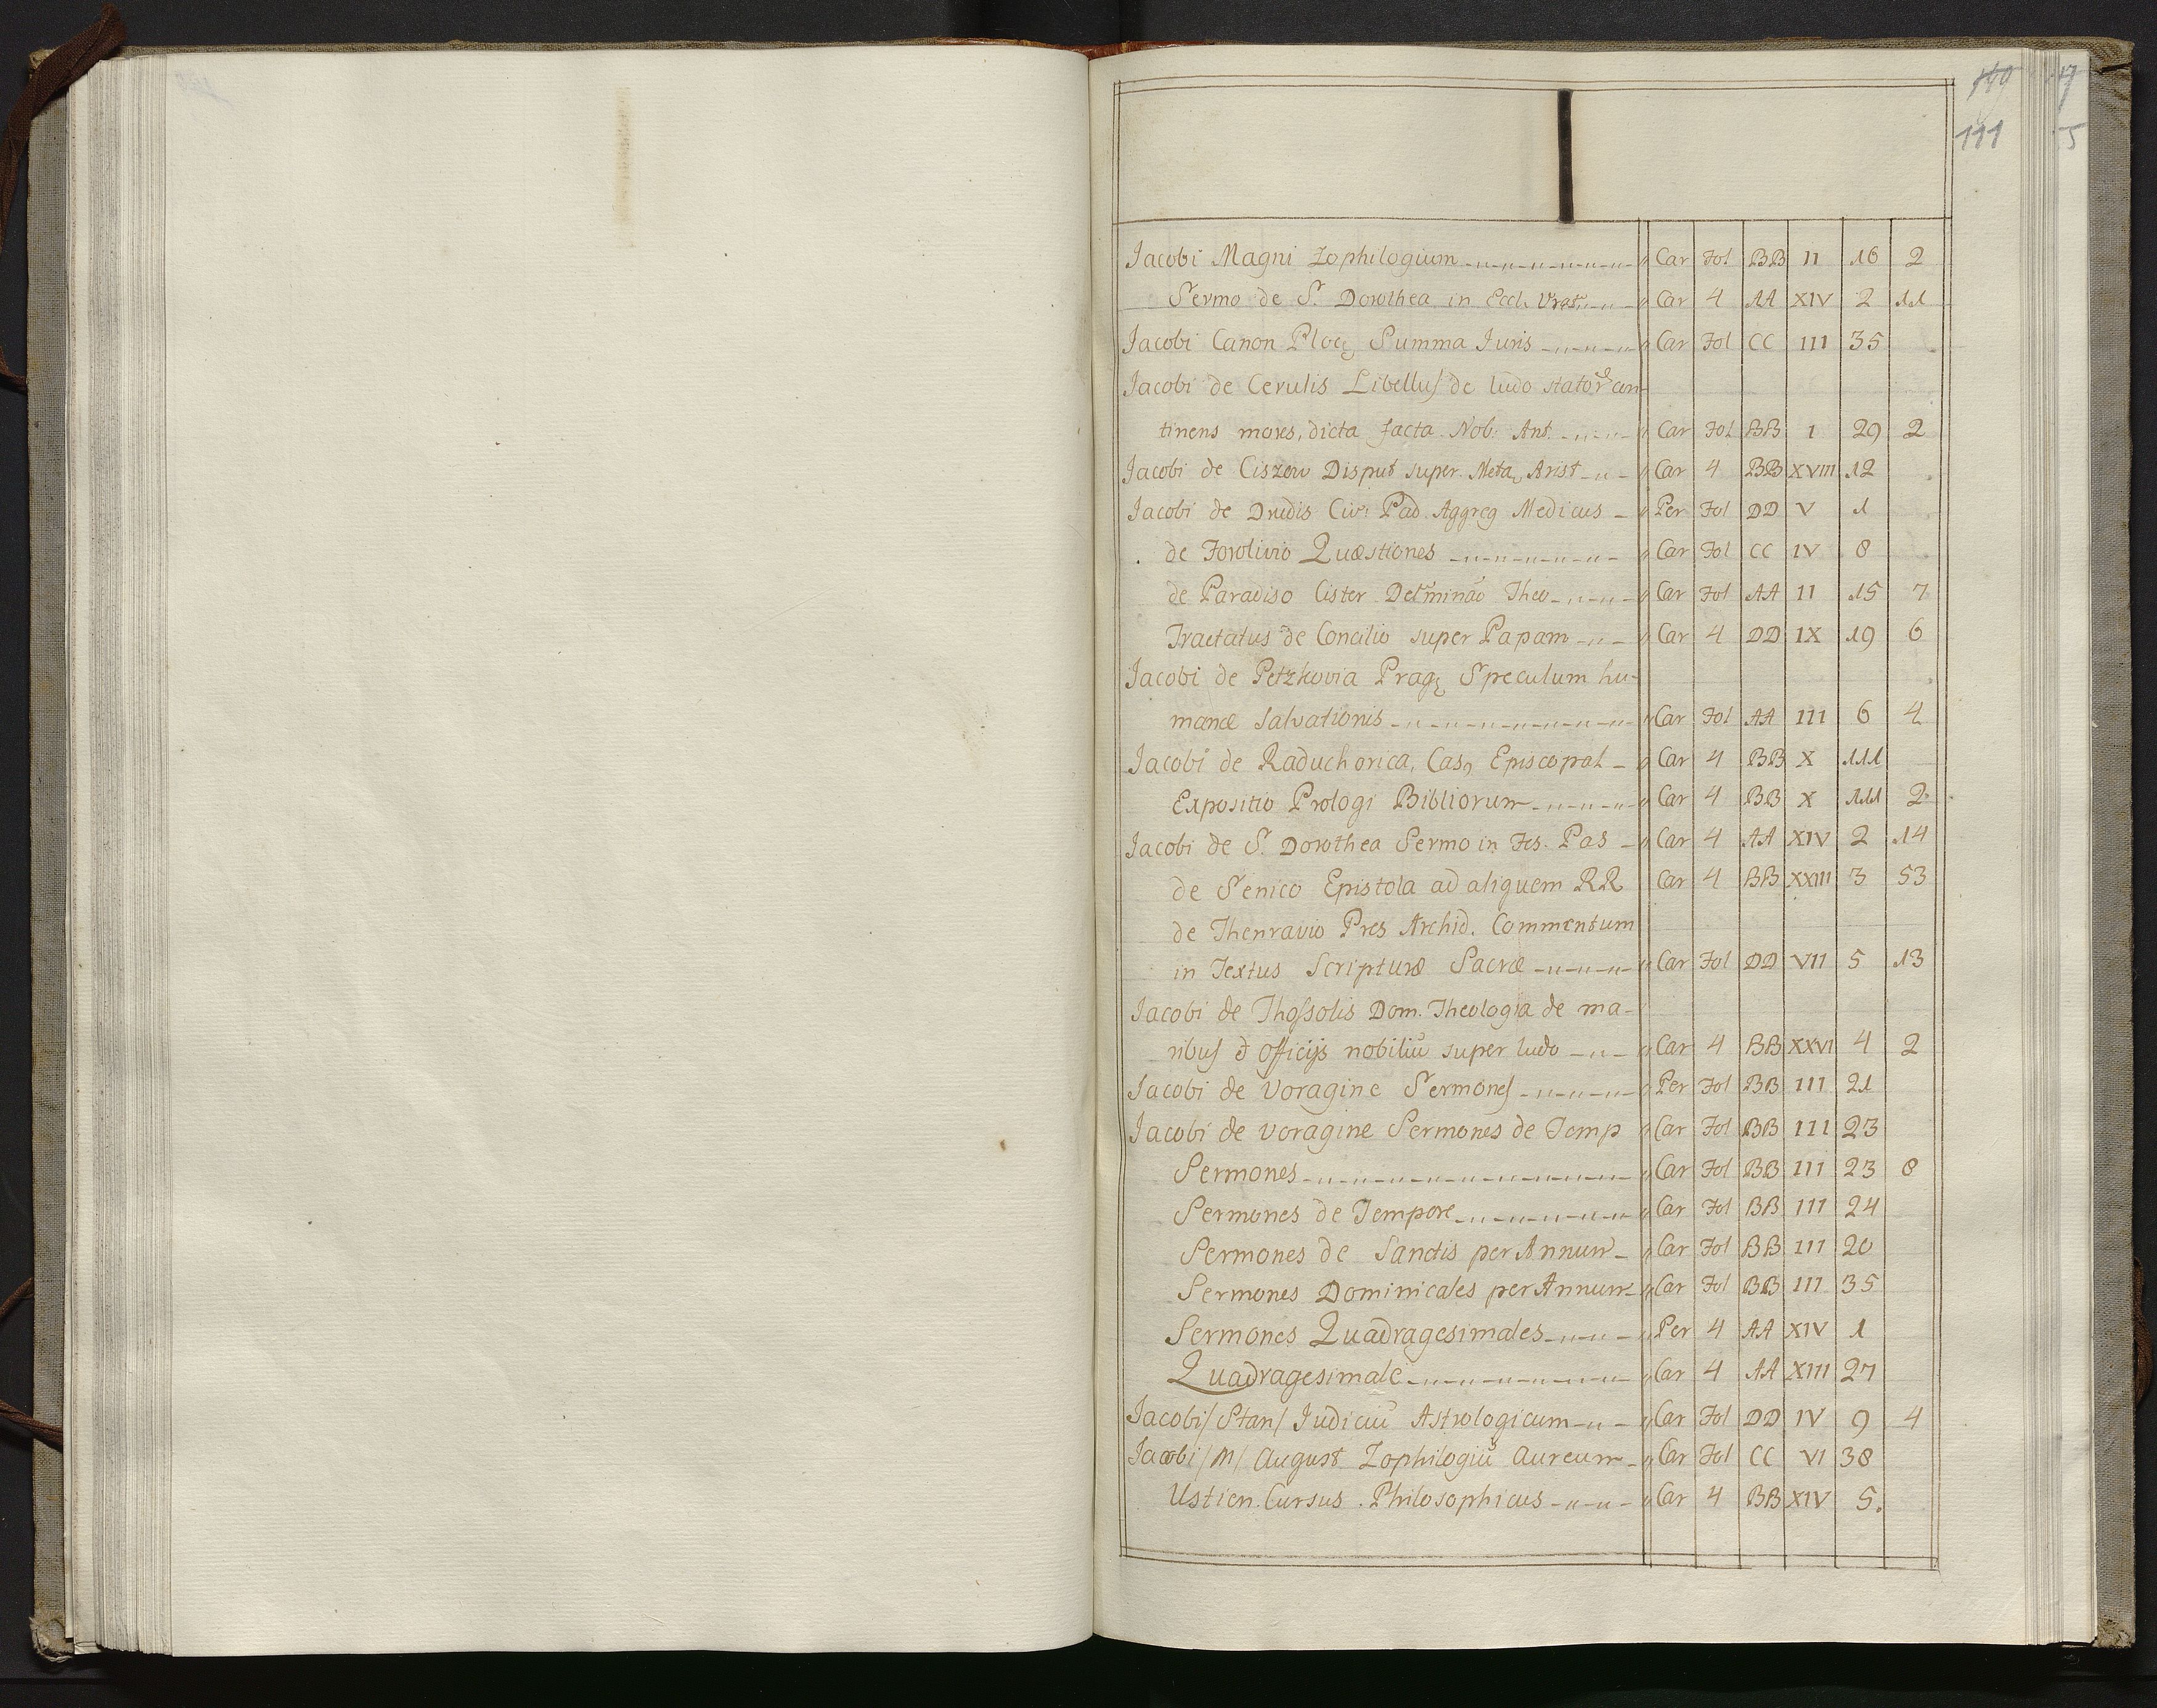 111
I
Jacobi Magni Zophilogium Car Fol BB II 16 2
Sermo de S. Dorothea in Eccl. Vrat. Car 4 AA XIV 2 11
Jacobi Canon Ploc. Summa Juris Car Fol CC III 35
Jacobi de Cerulis Libellus de ludo con-
tinens mores, dicta facta Nob. Ant. Car Fol BB I 29 2
Jacobi de Ciszow Disput super Meta. Arist Car 4 BB XVIII 12
Jacobi de Dudis Civ: Pad. Aggreg Medicus Per Fol DD V 1
de Forolivio Quæstiones Car Fol CC IV 8
de Paradiso Cister Detminão Theo Car Fol AA II 15 7
Tractatus de Concilio super Papam Car 4 DD IX 19 6
Jacobi de Petzkovia Prag. Speculum hu-
manæ salvationis Car Fol AA III 6 4
Jacobi de Raduchorica, Cas, Episcopal Car 4 BB X 111
Expositio Prologi Bibliorum Car 4 BB X 111 2
Jacobi de S. Dorothea Sermo in Fes. Pas Car 4 AA XIV 2 14
de Senico Epistola ad aliquem RR Car 4 BB XXIII 3 53
de Thenravio Pres Archid. Commentum
in Textus Scripturæ Sacræ Car Fol DD VII 5 13
Jacobi de Thossolis Dom. Theologia de ma-
ribus officijs nobiliũ super ludo Car 4 BB XXVI 4 2
Jacobi de Voragine Sermones Per Fol BB III 21
Jacobi de voragine Sermones de Temp Car Fol BB III 23
Sermones Car Fol BB III 23 8
Sermones de Tempore Car Fol BB III 24
Sermones de Sanctis per Annum Car Fol BB III 20
Sermones Dominicales per Annum Car Fol BB III 35
Sermones Quadragesimales Per 4 AA XIV 1
Quadragesimale Car 4 AA XIII 27
Jacobi /Stan/ Judiciũ Astrologicum Car Fol DD IV 9 4
Jacobi /M/ August Zophilogiũ Aureum Car Fol CC VI 38
Ustien. Cursus. Philosophicus Car 4 BB XIV 5.